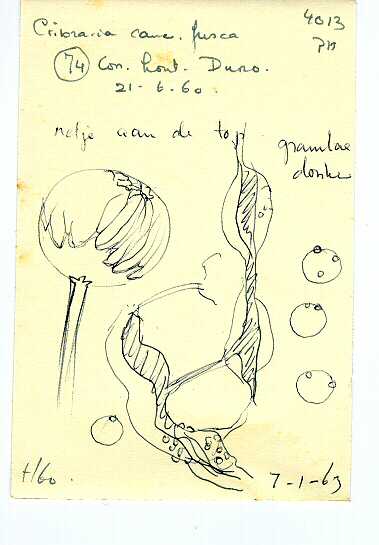 4013
PM
Cribraria canc. fusca
74 Con. hout. Duno.
21-6-60.
netje aan de top
granulae
donker
H/60.
7-1-63